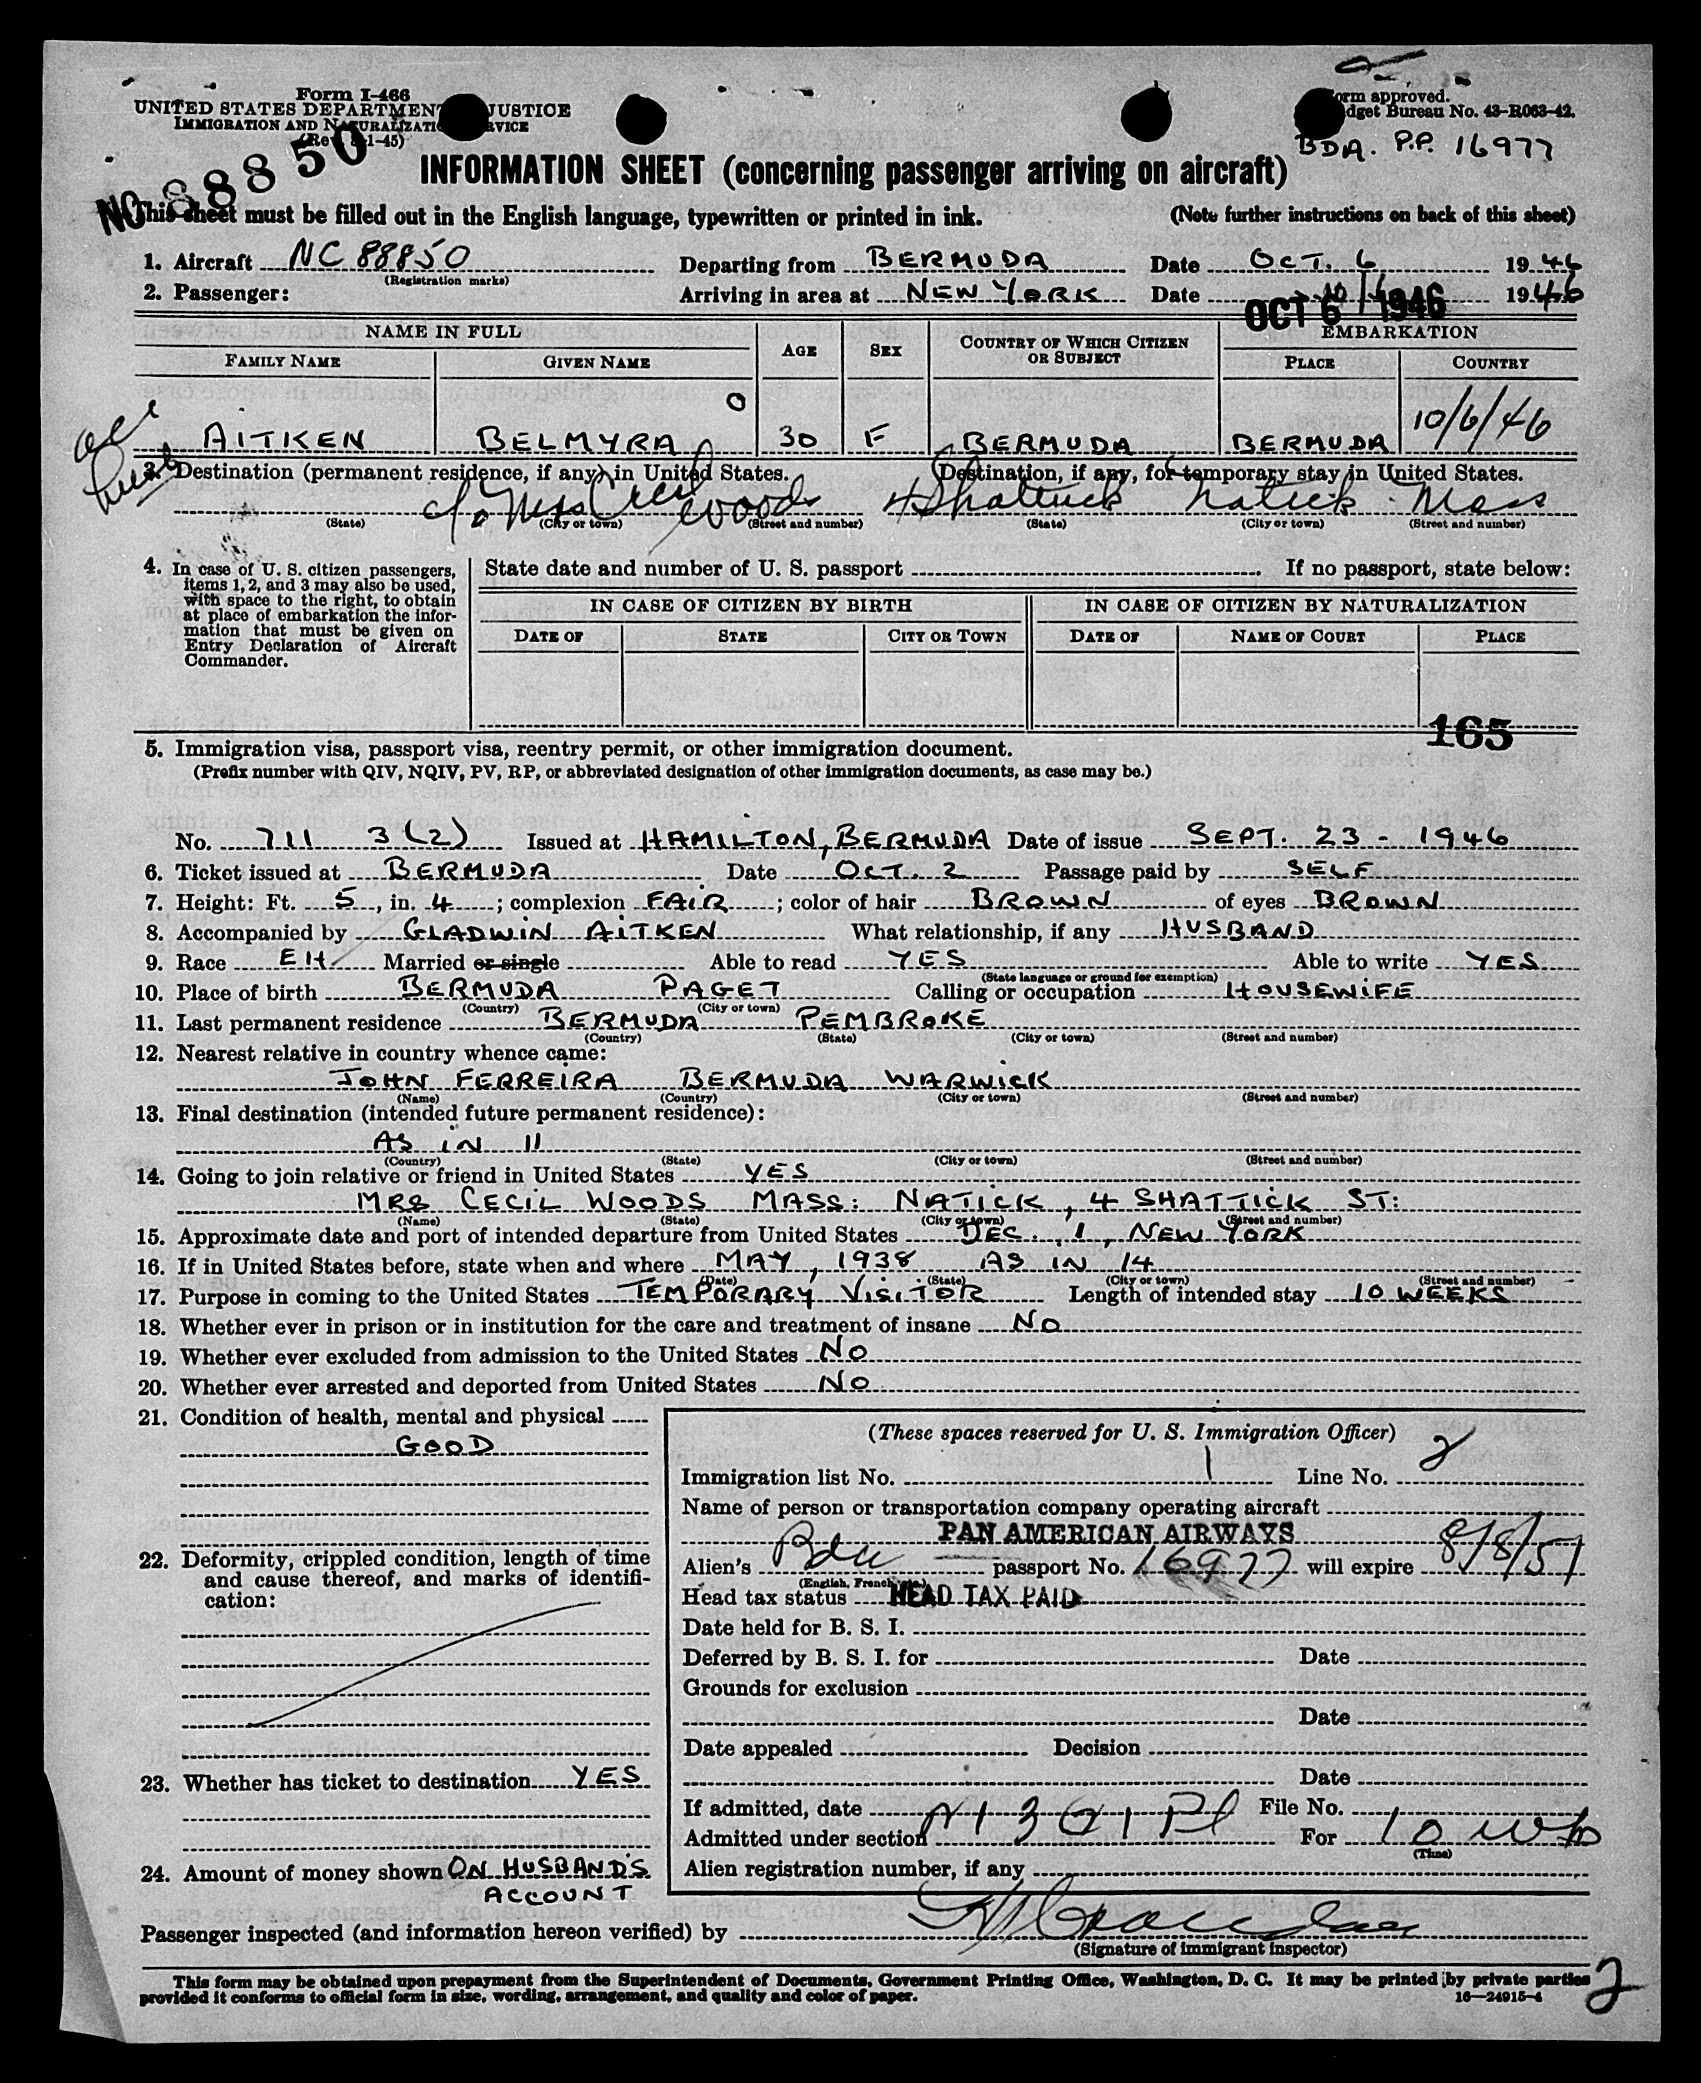 Form I-466
UNITED STATES DEPARTMENT JUSTICE
IMMIGRATION AND NATURALIZATION SERVICE
(Rev. 8-1-45)
Form approved.
Budget Bureau No. 43-R063-42.
BDA. P.P. 16977
NC 88850
INFORMATION SHEET (concerning passenger arriving on aircraft)
This sheet must be filled out in the English language, typewritten or printed in ink. (Note further instructions on back of this sheet)
1. Aircraft NC 88850 Departing from BERMUDA Date OCT. 6 1946
(Registration marks)
2. Passenger: Arriving in area at NEW YORK Date 10/6 1946
OCT 6 1946
NAME IN FULL AGE SEX COUNTRY OF WHICH CITIZEN OR SUBJECT EMBARKATION
FAMILY NAME GIVEN NAME PLACE COUNTRY
0
AITKEN BELMYRA 30 F BERMUDA BERMUDA 10/6/46
3. Destination (permanent residence, if any) in United States. Destination, if any, for temporary stay in United States.
c/o Mrs Cecil Woods 4 Shattuck Natick Mass
(State) (City or town) (Street and number) (State) (City or town) (Street and number)
4. In case of U. S. citizen passengers, items 1, 2, and 3 may also be used, with space to the right, to obtain at place of embarkation the information that must be given on Entry Declaration of Aircraft Commander.
State date and number of U. S. passport If no passport, state below:
IN CASE OF CITIZEN BY BIRTH IN CASE OF CITIZEN BY NATURALIZATION
DATE OF STATE CITY OR TOWN DATE OF NAME OF COURT PLACE
165
5. Immigration visa, passport visa, reentry permit, or other immigration document.
(Prefix number with QIV, NQIV, PV, RP, or abbreviated designation of other immigration documents, as case may be.)
No. 711 3(2) Issued at HAMILTON, BERMUDA Date of issue SEPT. 23 - 1946
6. Ticket issued at BERMUDA Date OCT. 2 Passage paid by SELF
7. Height: Ft. 5, in. 4; complexion FAIR; color of hair BROWN of eyes BROWN
8. Accompanied by GLADWIN AITKEN What relationship, if any HUSBAND
9. Race EH Married or single Able to read YES Able to write YES
(State language or ground for exemption)
10. Place of birth BERMUDA PAGET Calling or occupation HOUSEWIFE
(Country) (City or town)
11. Last permanent residence BERMUDA PEMBROKE
(Country) (State) (City or town) (Street and number)
12. Nearest relative in country whence came:
JOHN FERREIRA BERMUDA WARWICK
(Name) (Country) (City or town) (Street and number)
13. Final destination (intended future permanent residence):
AS IN 11
(Country) (State) (City or town) (Street and number)
14. Going to join relative or friend in United States YES
MRS CECIL WOODS MASS: NATICK, 4 SHATTICK ST:
(Name) (State) (City or town) (Street and number)
15. Approximate date and port of intended departure from United States DEC. 1, NEW YORK
16. If in United States before, state when and where MAY, 1938 AS IN 14
(Date) (State) (City or town) (Street and number)
17. Purpose in coming to the United States TEMPORARY VISITOR Length of intended stay 10 WEEKS
18. Whether ever in prison or in institution for the care and treatment of insane NO
19. Whether ever excluded from admission to the United States NO
20. Whether ever arrested and deported from United States NO
21. Condition of health, mental and physical
GOOD
22. Deformity, crippled condition, length of time and cause thereof, and marks of identification:
23. Whether has ticket to destination YES
24. Amount of money shown ON HUSBAND'S
ACCOUNT
(These spaces reserved for U. S. Immigration Officer)
Immigration list No. 1 Line No. 2
Name of person or transportation company operating aircraft
PAN AMERICAN AIRWAYS
Alien's Bda passport No. 16977 will expire 8/8/51
(English, French, etc.)
Head tax status HEAD TAX PAID
Date held for B. S. I.
Deferred by B. S. I. for Date
Grounds for exclusion
Date
Date appealed Decision
Date
If admitted, date File No.
Admitted under section For 10 wks
(Time)
Alien registration number, if any
Passenger inspected (and information hereon verified) by
(Signature of immigrant inspector)
This form may be obtained upon prepayment from the Superintendent of Documents, Government Printing Office, Washington, D. C. It may be printed by private parties
provided it conforms to official form in size, wording, arrangement, and quality and color of paper. 16—24915-4
2